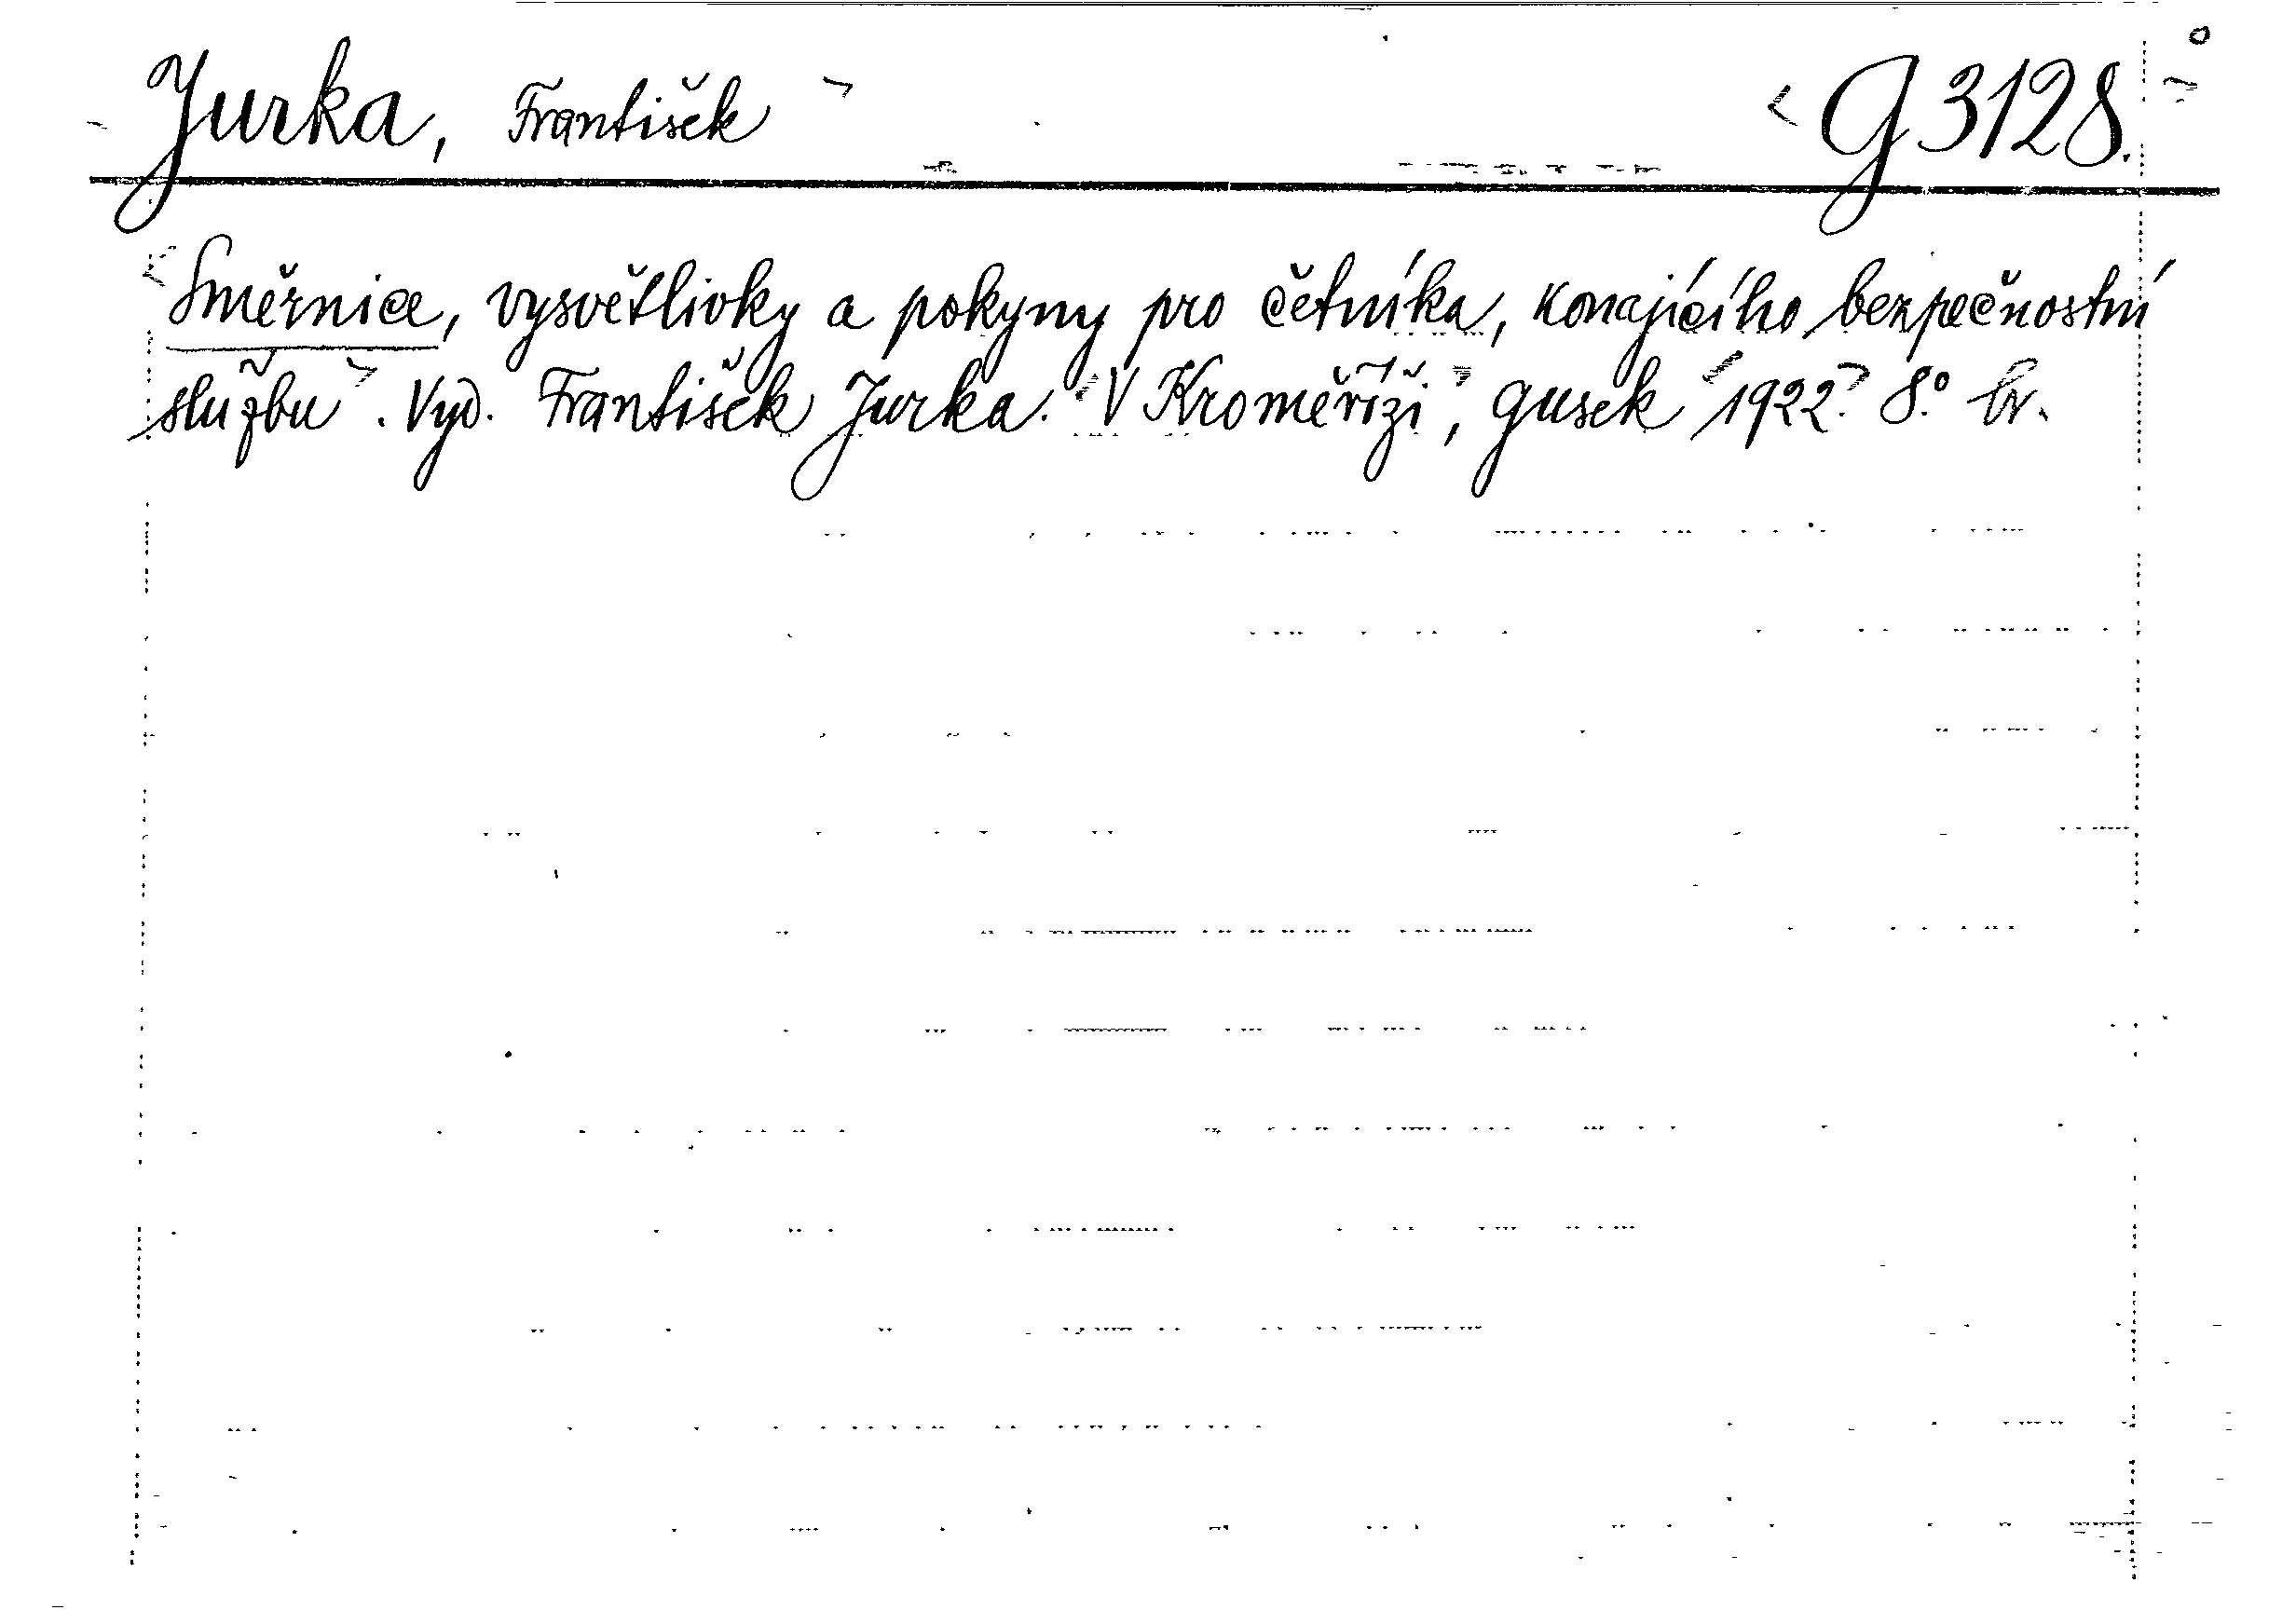 Jurka, František G 3128.
Směrnice, vysvětlivky a pokyny pro četníka, konajícího bezpečnostní
službu. Vyd. František Jurka. V Kroměříži, Gusek 1922. 8.° br.